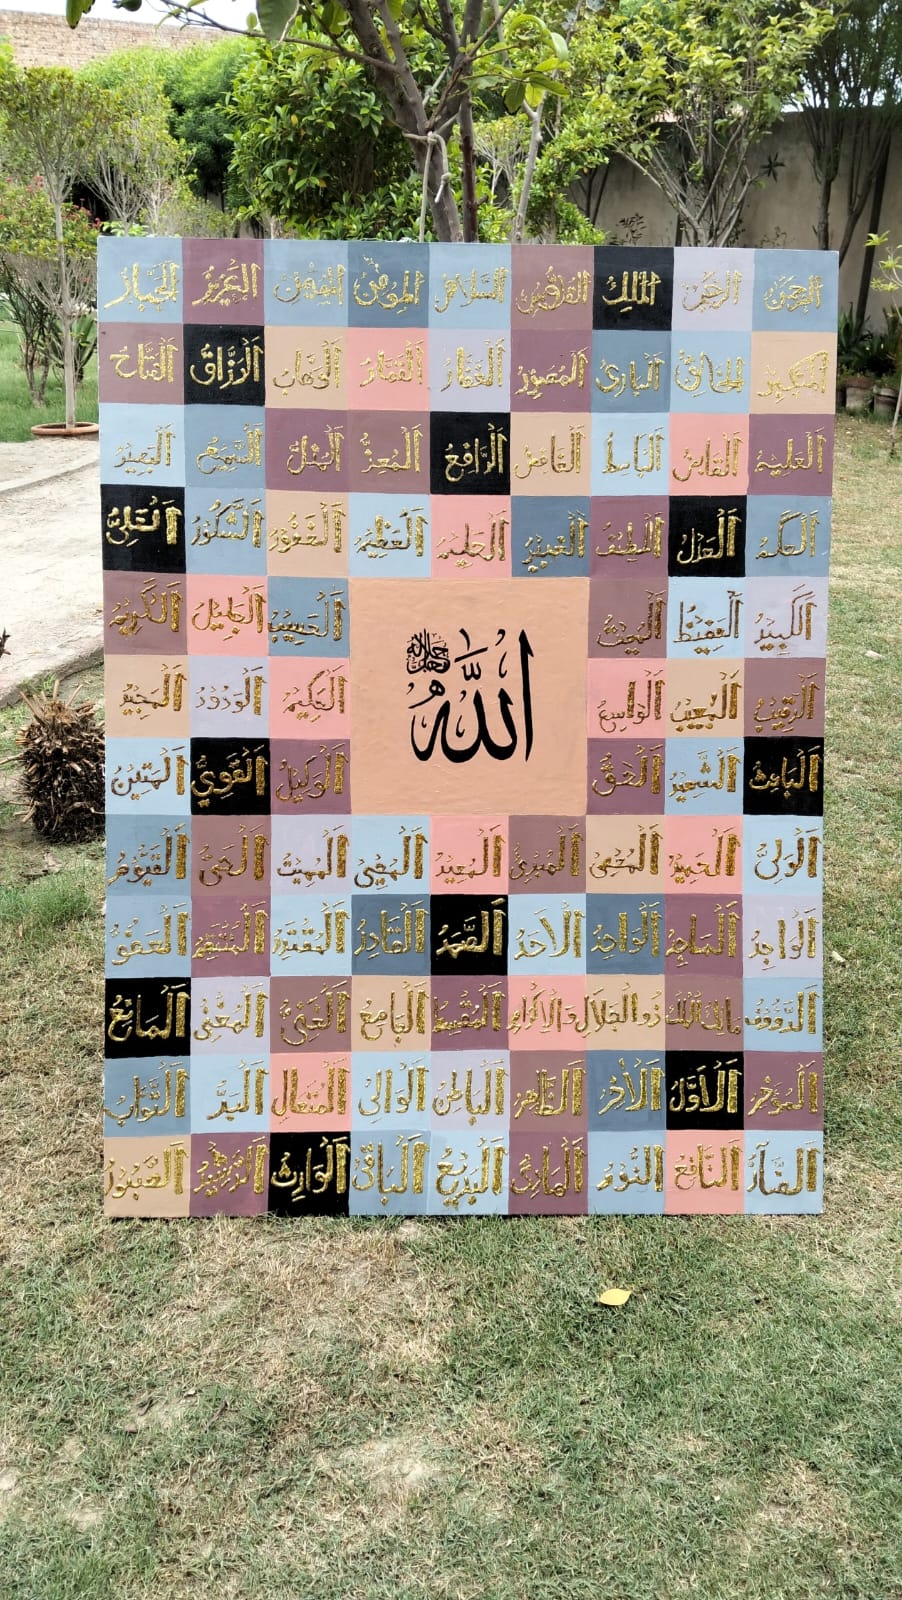 الرحمن الرحيم الملك القدوس السلام المؤمن المهيمن العزيز الجبار
المتكبر الخالق البارئ المصور الغفار القهار الوهاب الرزاق الفتاح
العليم القابض الباسط الخافض الرافع المعز المذل السميع البصير
الحكم العدل اللطيف الخبير الحليم العظيم الغفور الشكور العلي
الكبير الحفيظ المقيت الحسيب الجليل الكريم
الرقيب المجيب الواسع الحكيم الودود المجيد
الله جل جلاله
الباعث الشهيد الحق الوكيل القوي المتين
الولي الحميد المحصي المبدئ المعيد المحيي المميت الحي القيوم
الواجد الماجد الواحد الاحد الصمد القادر المقتدر العفو
الرءوف مالك الملك ذو الجلال والاكرام المقسط الجامع الغني المغني المانع
المؤخر الاول الاخر الظاهر الباطن الوالي المتعال البر التواب
الضار النافع النور الهادي البديع الباقي الوارث الرشيد الصبور